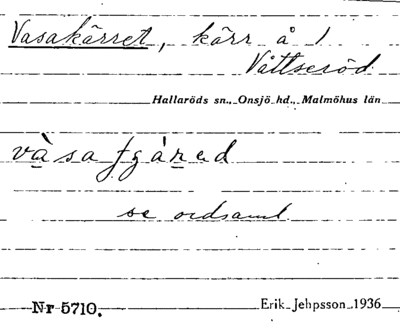 Vasakärret, kärr å 1
Våttseröd
Hallaröds sn., Onsjö hd., Malmöhus län
se ordsaml
Nr 5710.
Erik Jehpsson 1936